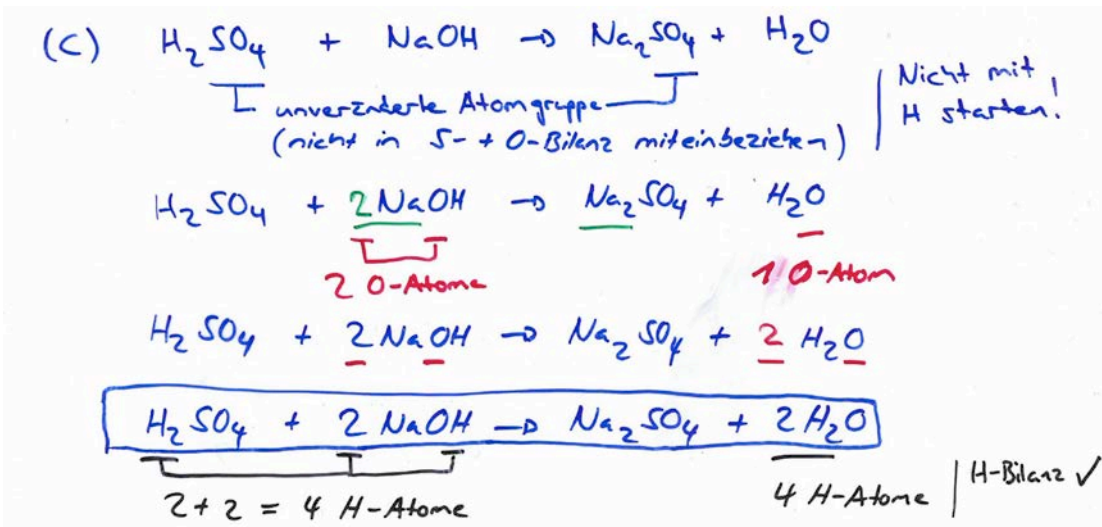 (C) H₂SO₄ + NaOH → Na₂SO₄ + H₂O
unveränderte Atomgruppe
(nicht in S- + O-Bilanz miteinbeziehen)
Nicht mit
H starten!
H₂SO₄ + 2NaOH → Na₂SO₄ + H₂O
2 O-Atome 1 O-Atom
H₂SO₄ + 2 NaOH → Na₂SO₄ + 2 H₂O
H₂SO₄ + 2 NaOH → Na₂SO₄ + 2 H₂O
2 + 2 = 4 H-Atome 4 H-Atome | H-Bilanz ✓